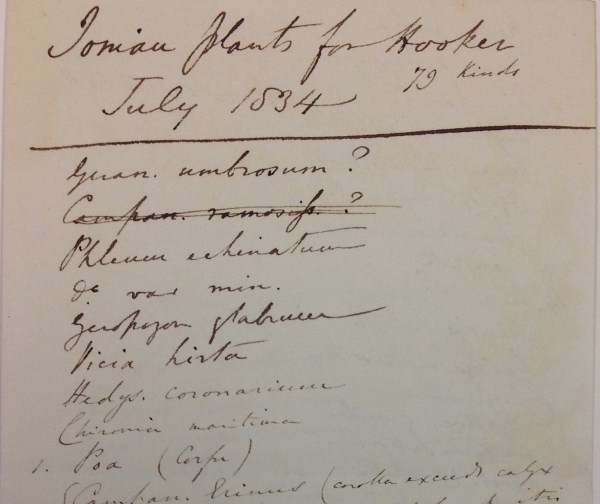 Ionian plants for Hooker
79 Kinds
July 1834
Geran. umbrosum ?
Campan. ramosiss. ?
Phleum echinatum
do var min.
Geropogon glabrum
Vicia hirta
Hedys. coronarium
Chironia maritima
1. Poa (Corfu)
Campan. Erinus (corolla exceeds calyx